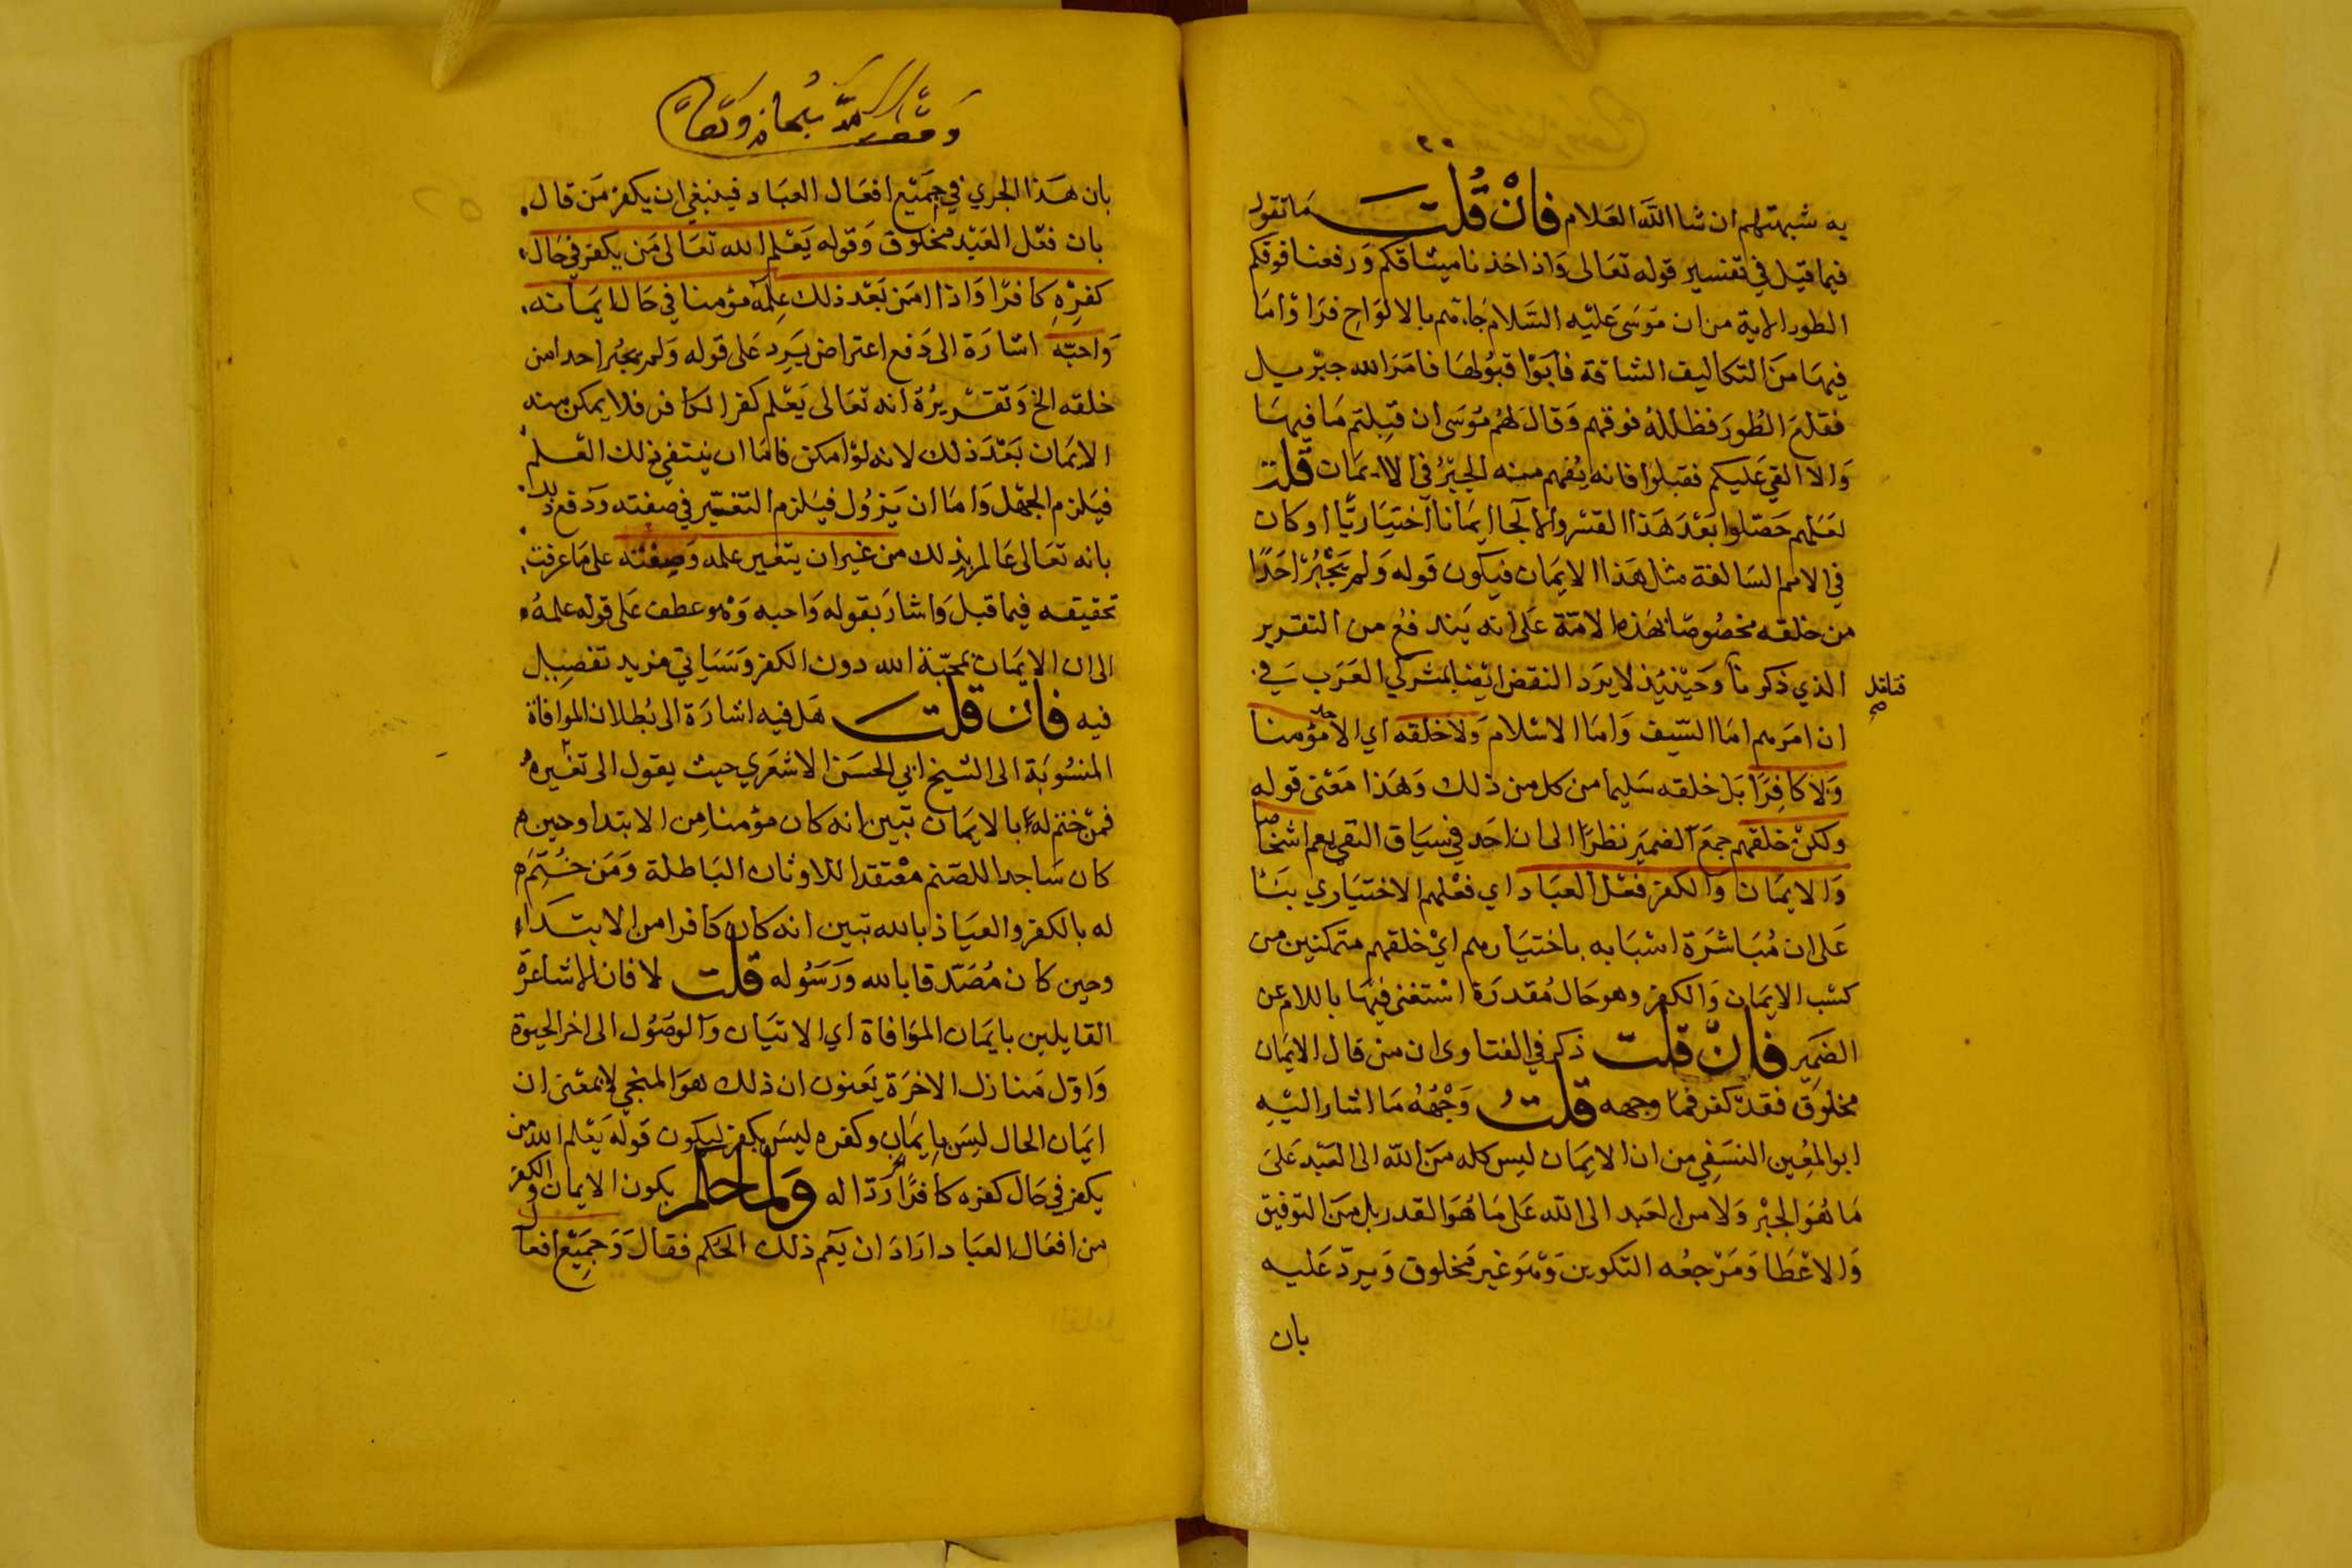 به شبهتهم ان شا الله العلام فَانْ قُلت مَا تقول
فيما قيل في تفسير قوله تعَالى وَاذ اخذنا ميثاقكم وَرفعنا فوقكم
الطور الاية من ان موسَى عَليْه السَّلام جَاءتهم بالالوَاح فرَاوْا مَا
فيهَا منَ التكاليف الشاقة فابَوْا قبُولهَا فامَرَ الله جبْريل
فقلعَ الطُورَ فظلله فوقهم وَقالَ لهُم مُوسَى ان قبِلتم مَا فيهَا
وَالا القي عَليكم فقبلوا فانه يُفهم منه الجبْرُ في الايمَان قلت
لعَلهم حَصّلوا بَعْدَ هَذا القسْر والالجَا ايمَانا اختيَاريًّا او كان
في الامم السَالفة مثل هَذا الايمَان فيَكون قوله وَلم يَجْبُرْ احَدًا
من خلقه مخصُوصًا بهَذه الامّة عَلى انه يَندفعُ من التقرير
الذي ذكرنَا وَحيْنئِذ لا يرَد النقض ايضا بمشركي العَرَب في
فتامل صح
ان امرَهم امَا السّيف وَامَا الاسْلام وَلا خلقه اي الاحد مؤمنا
وَلا كافِرًا بَل خلقه سَليما من كل من ذلك وَهَذا مَعْنى قوله
ولكنْ خلقهم جمَعَ الضميرَ نظرًا الى ان احَد في سيَاق النفي يعم اشخاصا
وَالايمَان وَالكفر فعْل العبَاد اي فعْلهم الاختيَاري بنَا
عَلى ان مُبَاشَرَة اسْبَابه باختيَارهم ايْ خلقهم متمكنين من
كسْب الايمَان وَالكفر وهو حَال مُقدرَة اسْتغنى فيهَا باللام عن
الضمير فانْ قلت ذكر في الفتاوى ان من قال الايمَان
مخلوق فقدْ كفر فمَا وجهه قلتُ وَجْهُهُ مَا اشار اليْهِ
ابو المعُين النسَفي من ان الايمَان ليس كله منَ الله الى العَبْد عَلى
مَا هُوَ الجبْر وَلا من العَبد الى الله عَلى مَا هُوَ القدر بل منَ التوفيق
وَالاعْطَا وَمَرْجعُه التكوين وَهوَ غير مَخلوق وَيردّ عَليه
بان
وقف لله سبحانه وتعالى
بان هَذا الجري في جمَيْع افعَال العبَاد فينبغي ان يكفر مَن قال
بان فعْل العَبْد مخلوق وَقوله يَعْلم الله تعَالى مَن يكفر في حَال
كفرِهِ كافرًا وَاذا امَن بَعْد ذلك عِلمَهُ مؤمنا في حَال ايمَانه
وَاحبّه اشارَة الى دَفع اعتراض يَرِد عَلى قوله وَلم يجبُر احدا من
خلقه الخ وَتقريرُهُ انه تعَالى يَعْلم كفر الكافر فلا يمكن منه
الايمَان بَعْدَ ذلك لانه لوْ امكن فامَا ان ينتفي ذلك العْلم
فيَلزم الجهْل وَامَا ان يَزوُل فيَلزم التغيّر في صفته وَدَفع بذ
بانه تعَالى عَالم بذلك من غير ان يتغير علمه وَصِفته عَلى مَا عرفت
تحقيقه فيما قبل وَاشارَ بقوله وَاحبه وَهو عطف عَلى قوله علمهُ
الى ان الايمَان بمحَبّة الله دون الكفر وَسَيَاتي مزيد تفصيل
فيه فان قلت هَل فيه اشارَة الى بُطلان الموافاة
المنسُوبَة الى الشيخ ابي الحسَن الاشعَري حيث يقول الى تغيره
فمنْ ختم لهُ بالايمَان تبَين انه كان مؤمنا من الابتدا وحين
كان سَاجدا للصّنم معْتقدا للاوثان البَاطلة وَمَن خُتِمَ
له بالكفر والعيَاذ بالله تبين انه كان كافرا من الابتدَاء
وحين كان مُصَدّقا بالله وَرَسُوله قلت لا فان الاشاعرة
القايلين بايمَان الموَافاة اي الاتيَان وَالوصُول الى اخر الحيوة
وَاوّل مَنازل الاخرَة يَعنون ان ذلك هوَ المنجي لا بمعْنى ان
ايمَان الحال ليسَ بِايمَانٍ وكفره ليسَ بكفر ليكون قوله يَعْلم الله من
يكفر في حَال كفره كافرًا رَدّا له وَلما حكم بكون الايمان والكفر
من افعَال العبَاد ارَادَ ان يعَم ذلك الحكم فقالَ وَجمَيْع افعَا